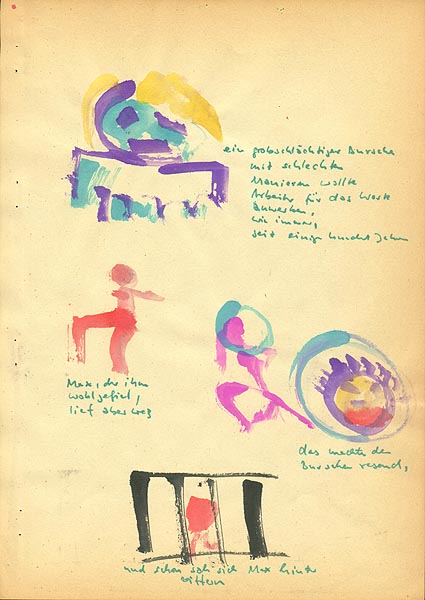 ein grobschlächtiger Bursche
mit schlechten
Manieren wollte
Arbeiter für das Werk
anwerben,
wie immer,
seit einigen hundert Jahren
Max, der ihm
wohlgefiel,
lief aber weg
das machte den
Burschen rasend,
und schon sah sich Max hinter
Gittern